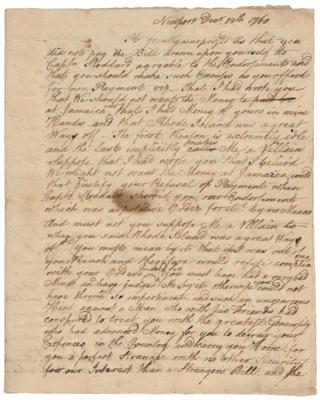 Newport Decr 19th 1760
It greatly surprized Us that you
did not pay the Bill drawn upon yourself to
Captn Stoddard agreeable to the Endorsement and
that you should make such Excuses as you offered
for non Payment viz. That I had wrote you
that We should not want the Money
at Jamaica, that I had Money of yours in mine
Hands and that Rhode Island was a great
Ways off. The first Reason is extremely
and the last implicitly makes Me a Villain
Suppose that I had wrote you that I
We might not want the Money at Jamaica, could
that justify your Refusal of Payment when
Captn Stoddard showed you our Endorsement
which was a positive Order for it? by no Means
And must not you suppose Me a Villain to
when you said Rhode Island was a great Ways
of. You must mean by it that I was out of
your Reach and therefore would refuse
with your Orders. you must have had a
Mind in having judged Me by it
hope therein so impertinent, and such an ungenerous
Hint against a Man who with his Friends had
conspired to treat you with the greatest Generosity
who had advanced Money for you to defray your
Expences in the Country and carry you Home, for
you a perfect Stranger with no other Security
for our Interest than a Strangers Bill, and the